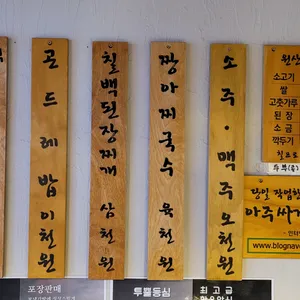 곤드레밥 이천원
칠백된장찌개 삼천원
짱아찌국수 육천원
소주·맥주 오천원
원산
소고기
쌀
고춧가루
된장
소금
깍두기
당일 작업한
아주싸
www.blognav
포장판매
투뿔등심
최고급